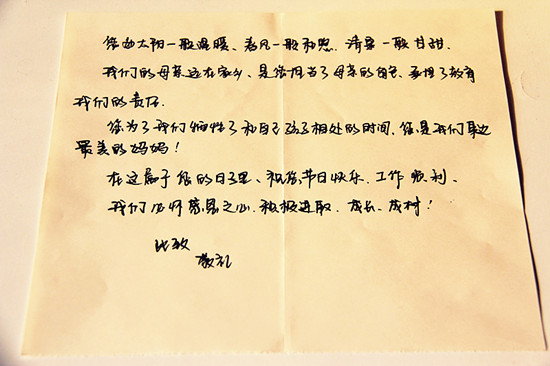 您如太阳一般温暖、春风一般和煦、清泉一般甘甜.
我们的母亲远在家乡、是您担当了母亲的角色、承担了教育
我们的责任.
您为了我们牺牲了和自己孩子相处的时间、您是我们身边
最美的妈妈！
在这属于您的日子里、祝您节日快乐、工作顺利、
我们必怀感恩之心、积极进取、成长、成材！
此致
敬礼